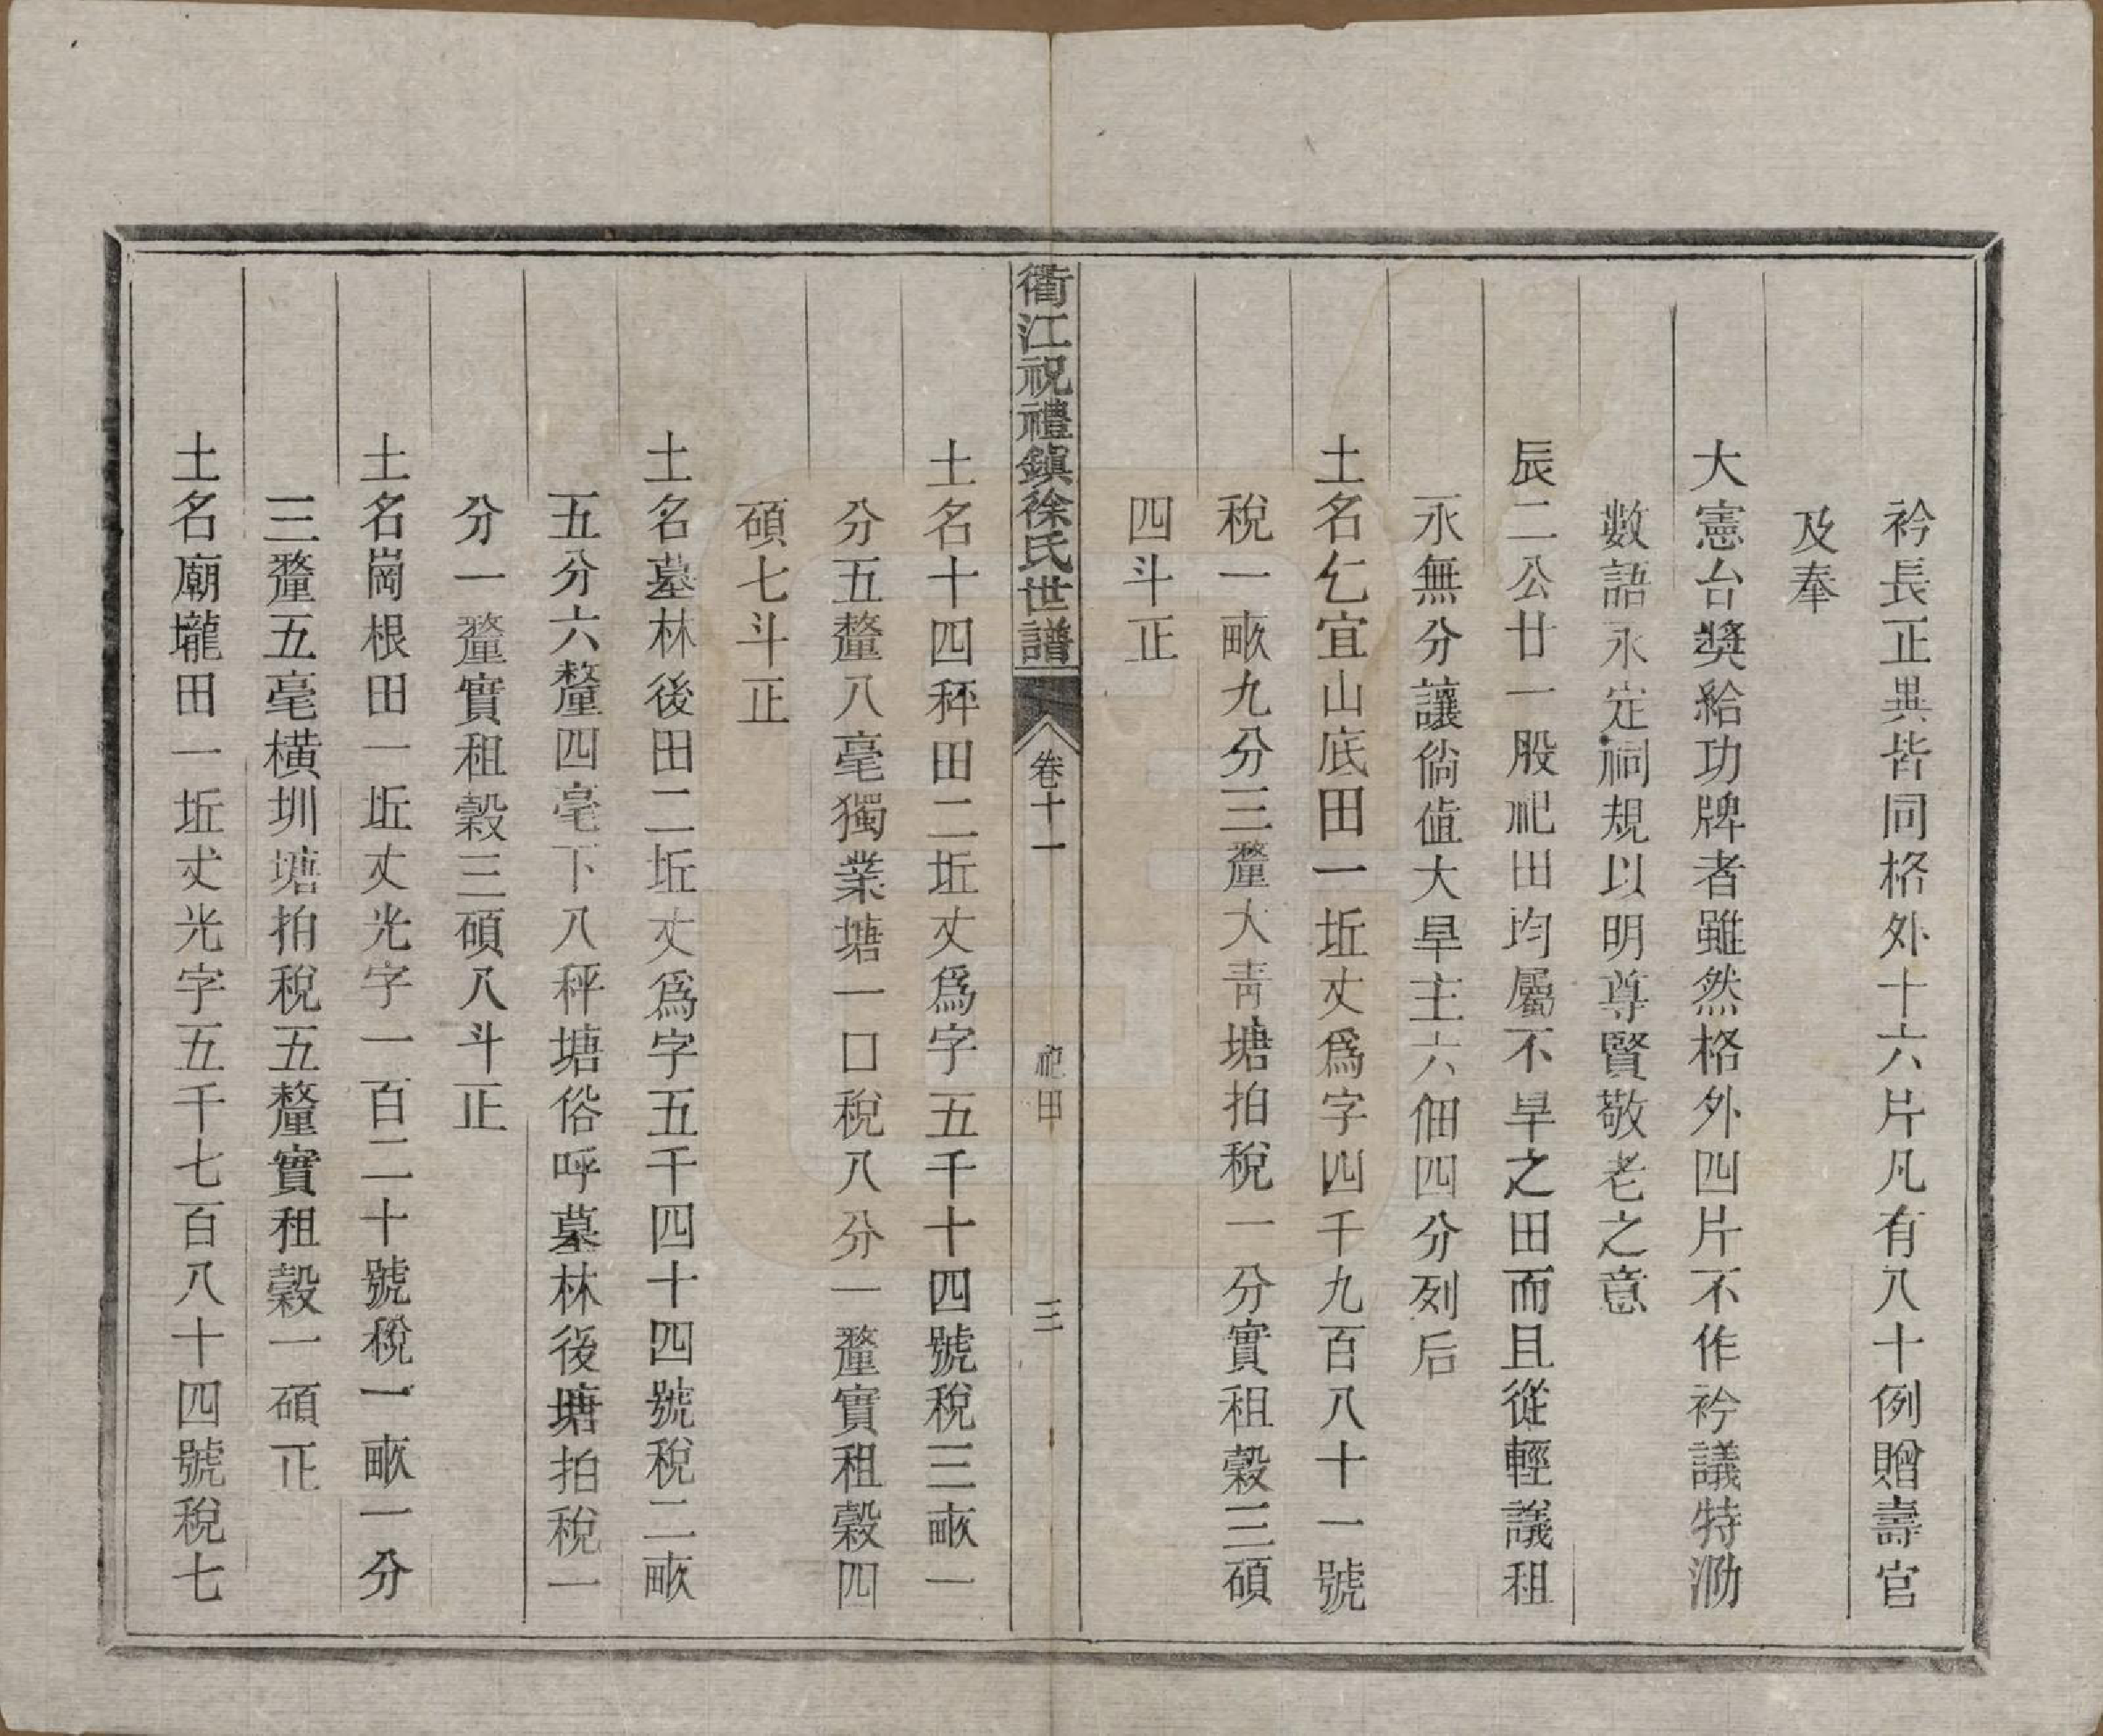 衿長正異皆同格外十六片凡有八十例贈壽官
及奉
大憲台奬給功牌者雖然格外四片不作衿議特泐
數語永定祠規以明尊賢敬老之意
辰二公廿一股祀田均屬不旱之田而且從輕議租
永無分讓倘值大旱主六佃四分列后
土名乞宜山底田一坵丈爲字四千九百八十一號
稅一畝九分三釐大靑塘拍稅一分實租穀三碩
四斗正
衢江祝禮鎮徐氏世譜 卷十一 祀田 三
土名十四秤田二坵丈爲字五千十四號稅三畝一
分五釐八毫獨業塘一口稅八分一釐實租穀四
碩七斗正
土名墓林後田二坵丈爲字五千四十四號稅二畝
五分六釐四毫下八秤塘俗呼墓林後塘拍稅一
分一釐實租穀三碩八斗正
土名崗根田一坵丈光字一百二十號稅一畝一分
三釐五毫橫圳塘拍稅五釐實租穀一碩正
土名廟壠田一坵丈光字五千七百八十四號稅七